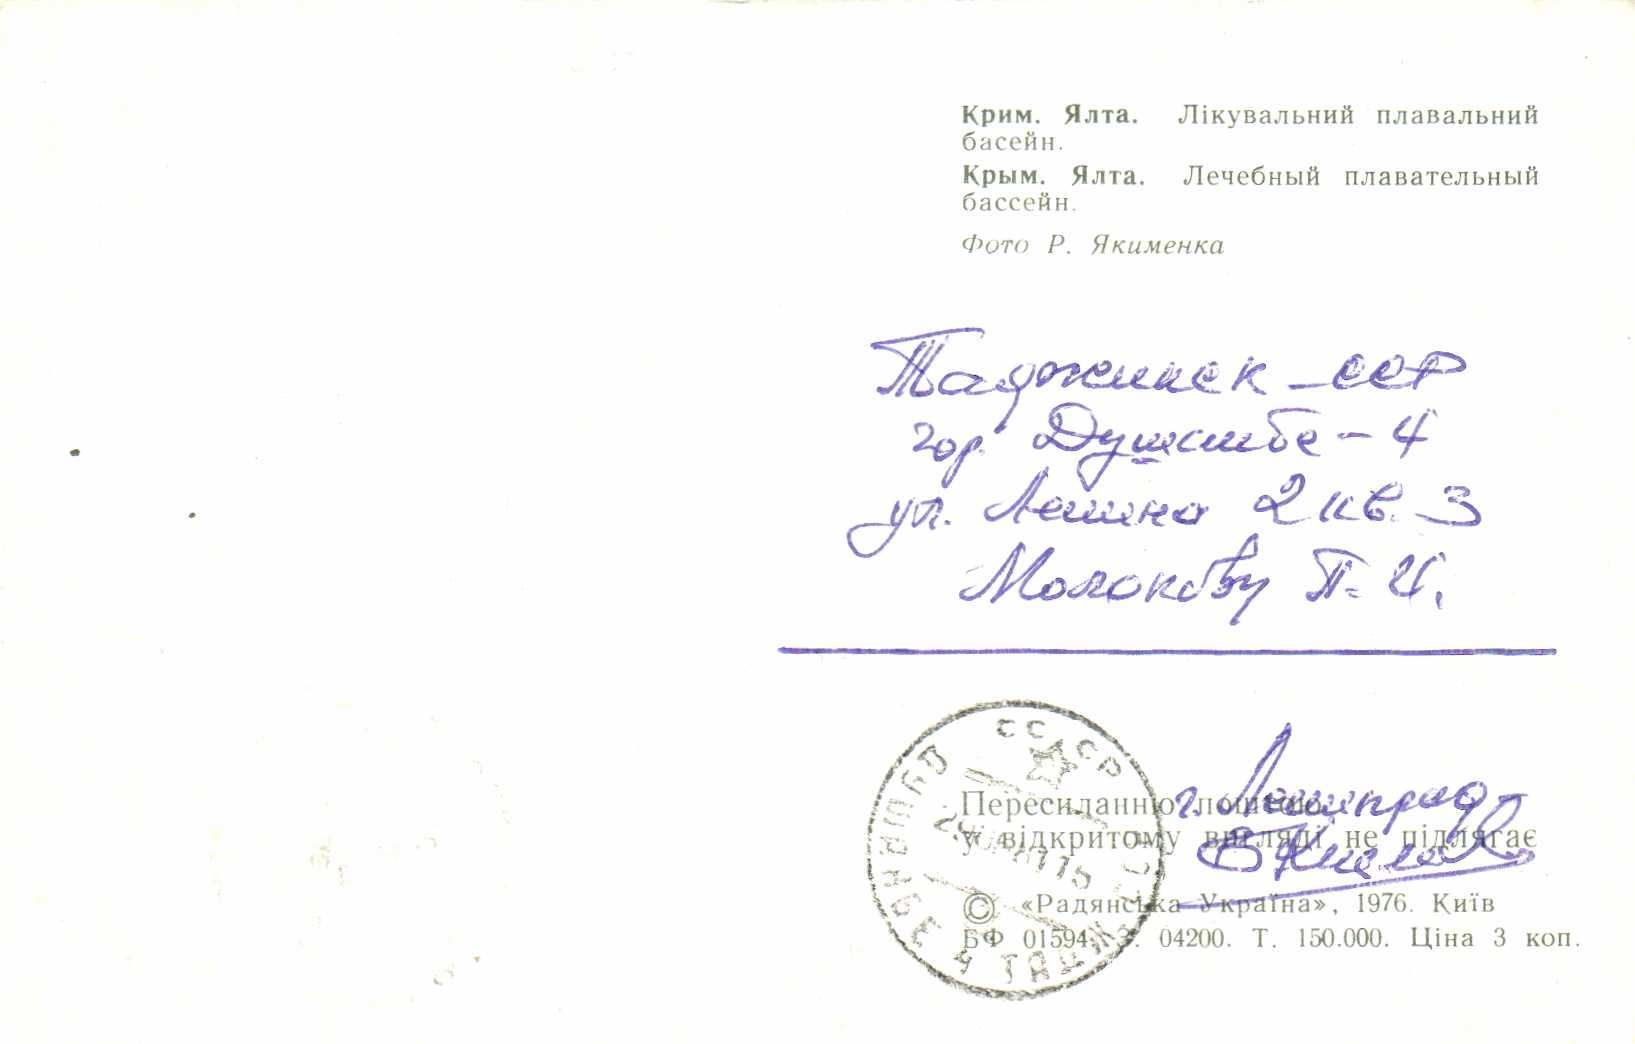 Крим. Ялта. Лікувальний плавальний
басейн.
Крым. Ялта. Лечебный плавательный
бассейн.
Фото Р. Якименка
Таджикск-ССР
гор. Душанбе-4
ул. Ленина 2 кв. 3
Молокову П. И.
СССР
ДУШАНБЕ 4 ТАДЖ
Пересиланню поштою
у відкритому вигляді не підлягає
г. Ленинград
© «Радянська Україна», 1976. Київ
БФ 01594. З. 04200. Т. 150.000. Ціна 3 коп.